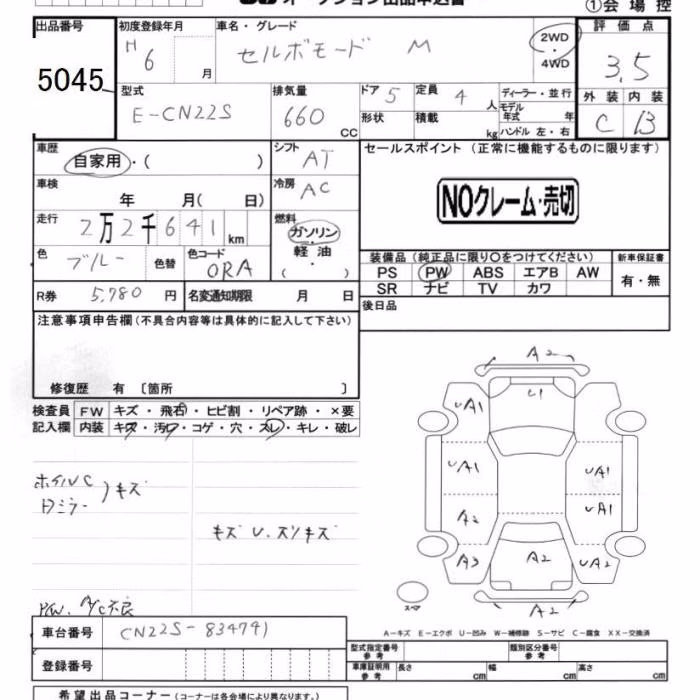 オークション出品申込書
①会場控
出品番号 初度登録年月 車名・グレード 評価点
5045 H 6 月 セルボモード M 2WD・4WD 3.5
型式 排気量 ドア 5 定員 4 人 ディーラー・並行 外装 内装
E-CN22S 660 CC 形状 積載 kg モデル年式 年 ハンドル 左・右 C B
車歴 シフト セールスポイント (正常に機能するものに限ります)
自家用・( ) AT
車検 冷房
年 月( 日) AC NOクレーム・売切
走行 燃料
2万2千641km ガソリン・軽油・( )
色 ブルー 色替 色コード 0RA
装備品 (純正品に限り○をつけてください) 新車保証書
PS PW ABS エアB AW 有・無
SR ナビ TV カワ
R券 5,780 円 名変通知期限 月 日 後日品
注意事項申告欄 (不具合内容等は具体的に記入して下さい)
修復歴 有 〔箇所 〕
検査員 FW キズ・飛石・ヒビ割・リペア跡・×要
記入欄 内装 キズ・汚レ・コゲ・穴・スレ・キレ・破レ
ホイルC
Dミラー )キズ
キズ U.スリキズ
P/W. A/C不良
A2
U1
UA1
UA1 UA1
UA1
A2
A3 A2 UA2
A2
スペア
A-キズ E-エクボ U-凹み W-補修跡 S-サビ C-腐食 XX-交換済
車台番号 CN22S-834741
登録番号
型式指定番号 参考 類別区分番号 参考
車庫証明用 参考 長さ cm 幅 cm 高さ cm
希望出品コーナー (コーナーは各会場により異なります。)